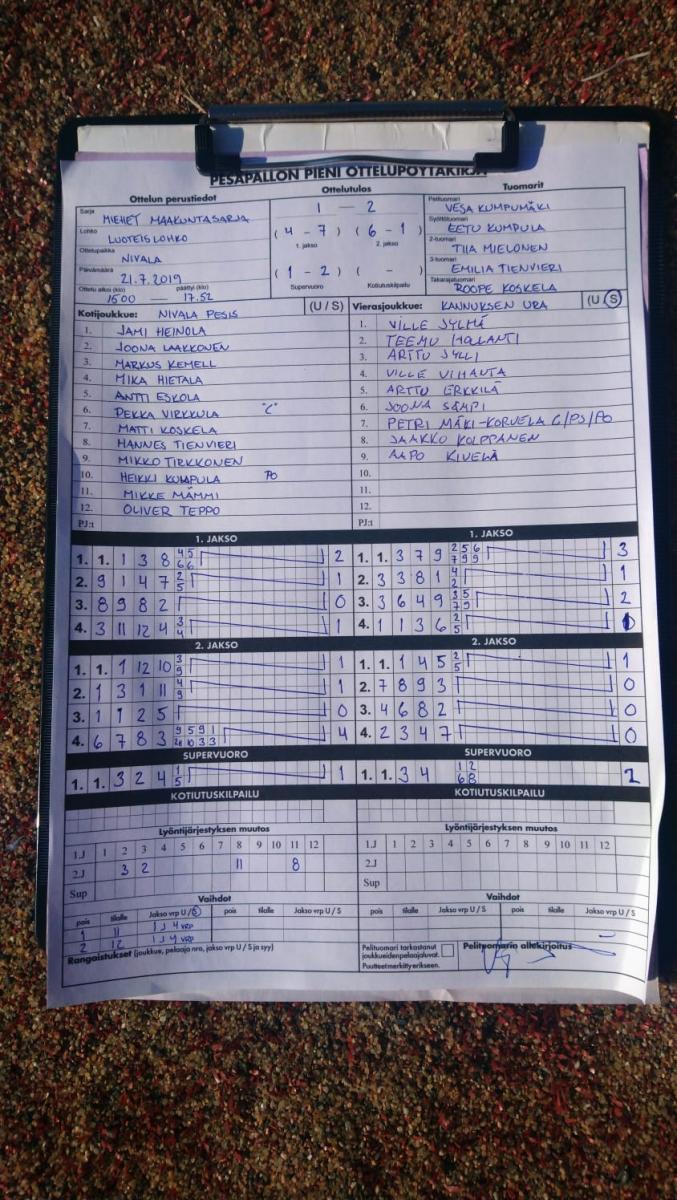 PESÄPALLON PIENI OTTELUPÖYTÄKIRJA
Ottelun perustiedot
Sarja MIEHET MAAKUNTASARJA
Lohko LUOTEISLOHKO
Ottelupaikka NIVALA
Päivämäärä 21.7.2019
Ottelu alkoi (klo) päättyi (klo)
1600 — 17.52
Ottelutulos
1 — 2
(4 - 7) (6 - 1)
1. jakso 2. jakso
(1 - 2) ( - )
Supervuoro Kotiutuskilpailu
Tuomarit
Pelituomari VESA KUMPUMÄKI
Syöttötuomari EETU KUMPULA
2-tuomari TIIA MIELONEN
3-tuomari EMILIA TIENVIERI
Takarajatuomari ROOPE KOSKELA
Kotijoukkue: NIVALA PESIS (U / S)
1. JAMI HEINOLA
2. JOONA LAAKKONEN
3. MARKUS KEMELL
4. MIKA HIETALA
5. ANTTI ESKOLA
6. PEKKA VIRKKULA "C"
7. MATTI KOSKELA
8. HANNES TIENVIERI
9. MIKKO TIRKKONEN
10. HEIKKI KUMPULA PO
11. MIKKE MÄMMI
12. OLIVER TEPPO
PJ:t
Vierasjoukkue: KANNUKSEN URA (U / S)
1. VILLE JYLHÄ
2. TEEMU HOLANTI
3. ARTTU JYLLI
4. VILLE VIHAVTA
5. ARTTU ERKKILÄ
6. JOONA SÄMPI
7. PETRI MÄKI-KORVELA C/PJ/PO
8. JAAKKO KOLPPANEN
9. AAPO KIVELÄ
10.
11.
12.
PJ:t
1. JAKSO
1. 1. 1 3 8 4 5 6 6 2
2. 9 1 4 7 2 5 1
3. 8 9 8 2 0
4. 3 11 12 4 3 4 1
2. JAKSO
1. 1. 1 12 10 3 9 1
2. 1 3 1 11 4 9 1
3. 1 1 2 5 0
4. 6 7 8 3 9 5 9 1 10 3 3 4
SUPERVUORO
1. 1. 3 2 4 1 5 1
KOTIUTUSKILPAILU
1. JAKSO
1. 1. 3 7 9 2 5 6 7 9 9 3
2. 3 3 8 1 4 2 1
3. 3 6 4 9 3 5 7 9 2
4. 1 1 3 6 2 5 1
2. JAKSO
1. 1. 1 4 5 2 5 1
2. 7 8 9 3 0
3. 4 6 8 2 0
4. 2 3 4 7 0
SUPERVUORO
1. 1. 3 4 1 2 6 8 2
KOTIUTUSKILPAILU
Lyöntijärjestyksen muutos
1.J 1 2 3 4 5 6 7 8 9 10 11 12
2.J 3 2 11 8
Sup
Vaihdot
pois tilalle Jakso vrp U / S pois tilalle Jakso vrp U / S
1 11 1J 4 VRP
2 12 1J 4 VRP
Rangaistukset (joukkue, pelaaja nro, jakso vrp U / S ja syy)
Lyöntijärjestyksen muutos
1.J 1 2 3 4 5 6 7 8 9 10 11 12
2.J
Sup
Vaihdot
pois tilalle Jakso vrp U / S pois tilalle Jakso vrp U / S
Pelituomari tarkastanut
joukkueidenpelaajaluvat.
Puutteetmerkittyerikseen.
Pelituomarin allekirjoitus